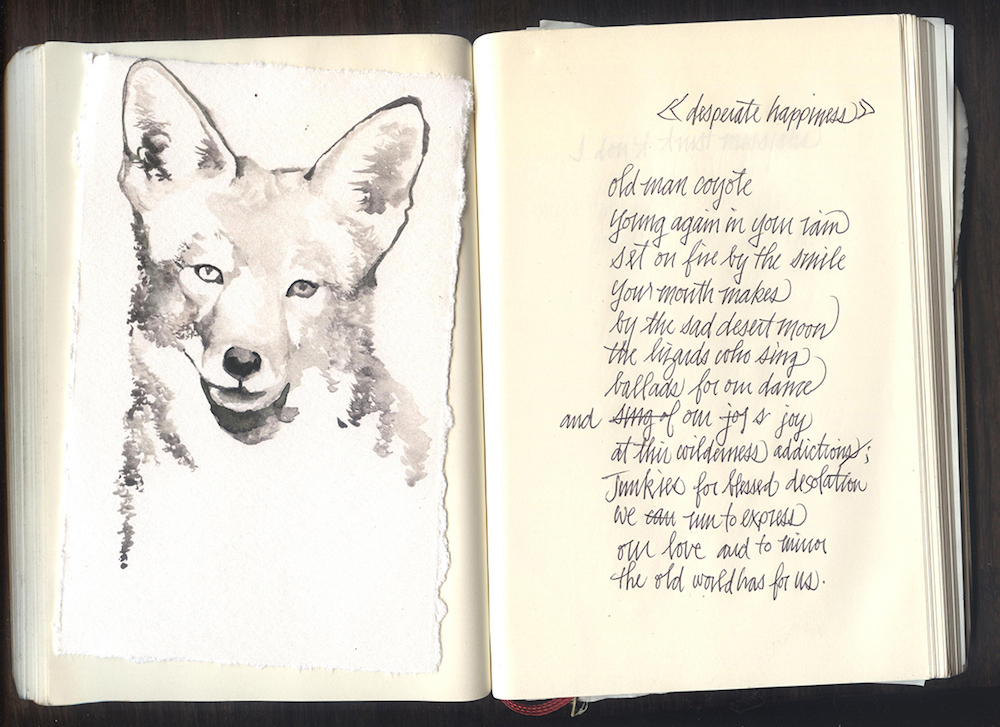 << desperate happiness >>
old man coyote
young again in your rain
set on fire by the smile
your mouth makes
by the sad desert moon
the lizards who sing
ballads for our dance
and sing of our joy s joy
at this wilderness addictions;
Junkies for blessed desolation
we can run to express
our love and to mirror
the old world has for us.